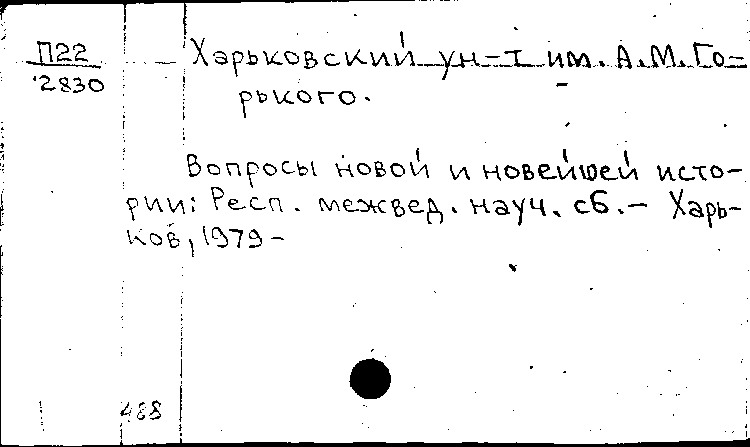 П22
2830
Харьковский ун-т им. А.М. Го-
рького.
Вопросы новой и новейшей исто-
рии: Респ. межвед. науч. сб.- Харь-
ков, 1979-
488